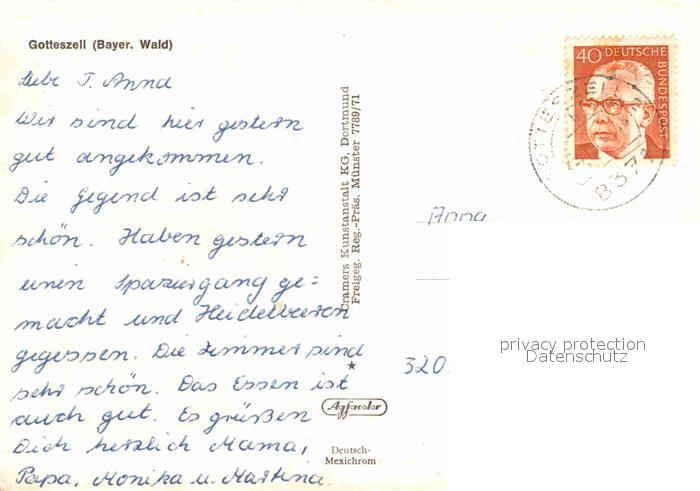 Gotteszell (Bayer. Wald)
Liebe T. Anna
Wir sind hier gestern
gut angekommen.
Die Gegend ist sehr
schön. Haben gestern
einen Spaziergang ge=
macht und Heidelbeeren
gegessen. Die Zimmer sind
sehr schön. Das Essen ist
auch gut. Es grüßen
Dich herzlich Mama,
Papa, Monika u. Martina.
Cramers Kunstanstalt KG, Dortmund
Freigeg. Reg.-Präs. Münster 7789/71
Agfacolor
Deutsch-
Mexichrom
40 DEUTSCHE
BUNDESPOST
GOTTESZELL
8371
Anna
320
privacy protection
Datenschutz